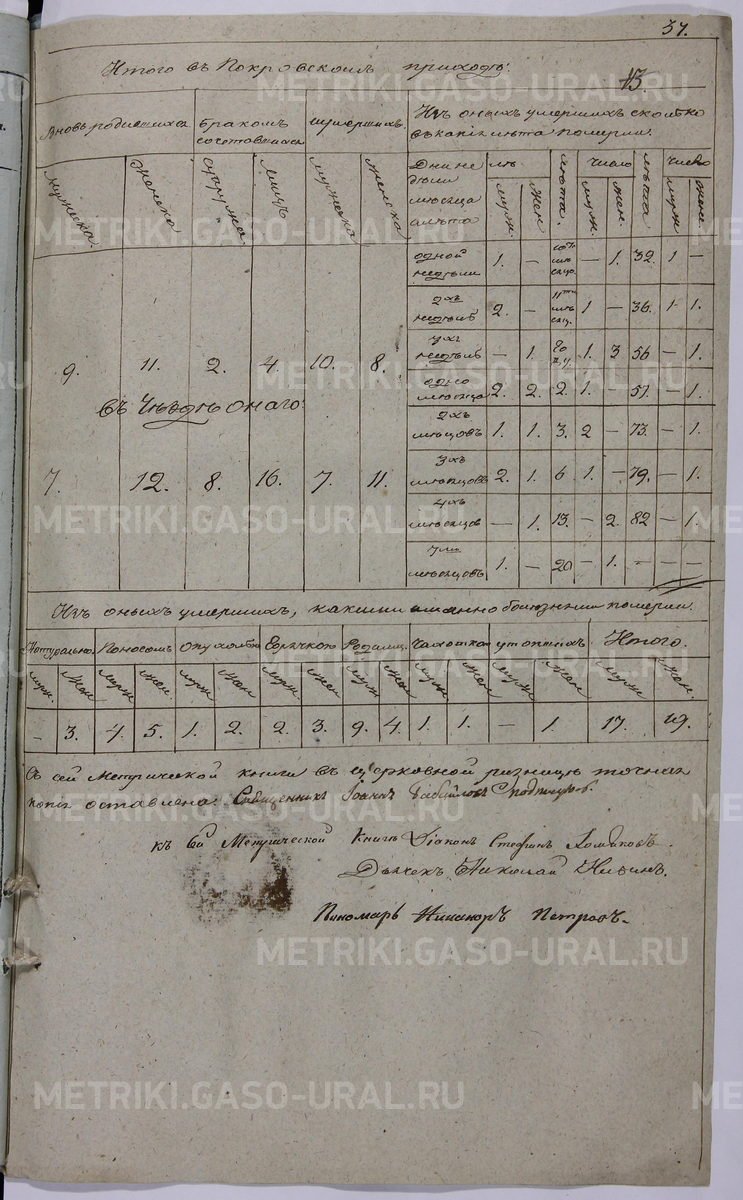 37.
Итого въ Покровскомъ приходѣ:
43.
Вновь родившихся | Бракомъ сочетавшихся | Умершихъ. | Изъ оныхъ умершихъ сколько въ какія лѣта померли.
Мужеска. | Женска | Супружа | Лицъ | Мужеска | Женска | Дни недѣли мѣсяца и лѣта | муж. | жен | лѣта. | число муж. | жен. | лѣта | число муж | жен.
одной недѣли | 1. | – | – | 1. | 32. | 1 | –
2хъ недѣль | 2. | – | 1 | – | 36. | 1 | 1.
недѣль | – | 1. | 1. | 3 | 56 | – | 1.
9. | 11. | 2. | 4. | 10. | 8.
одного мѣсяца | 2. | 2. | 2. | 1. | – | 57. | – | 1.
въ уѣздѣ онаго
2хъ мѣсяцовъ | 1. | 1. | 3. | 2 | – | 73. | – | 1.
3хъ мѣсяцовъ | 2. | 1. | 6 | 1. | – | 79. | – | 1.
7. | 12. | 8. | 16. | 7. | 11.
4хъ мѣсяцов | – | 1. | 13. | – | 2. | 82 | – | 1.
7ми мѣсяцовъ | 1. | – | 20 | – | 1. | – | – | –
Изъ оныхъ умершихъ, какими именно болѣзньми померли.
Натурально | Поносомъ | Опухолью | Горячкою | Родимц | Чахоткою | утопшихъ | Итого.
муж. | жен | муж | жен. | муж | жен | муж. | жен | муж | жен | муж | жен | муж | жен | муж | жен.
– | 3. | 4. | 5. | 1. | 2. | 2. | 3. | 9. | 4. | 1. | 1. | – | 1. | 17. | 19.
Съ сей Метрической книги въ церковной ризницѣ точная
копія оставлена. Священникъ Іоаннъ
къ сей Метрической книгѣ Діаконъ Стефанъ Хомяковъ.
Дьячекъ Николай
Пономарь Никаноръ Петровъ.
METRIKI.GASO-URAL.RU